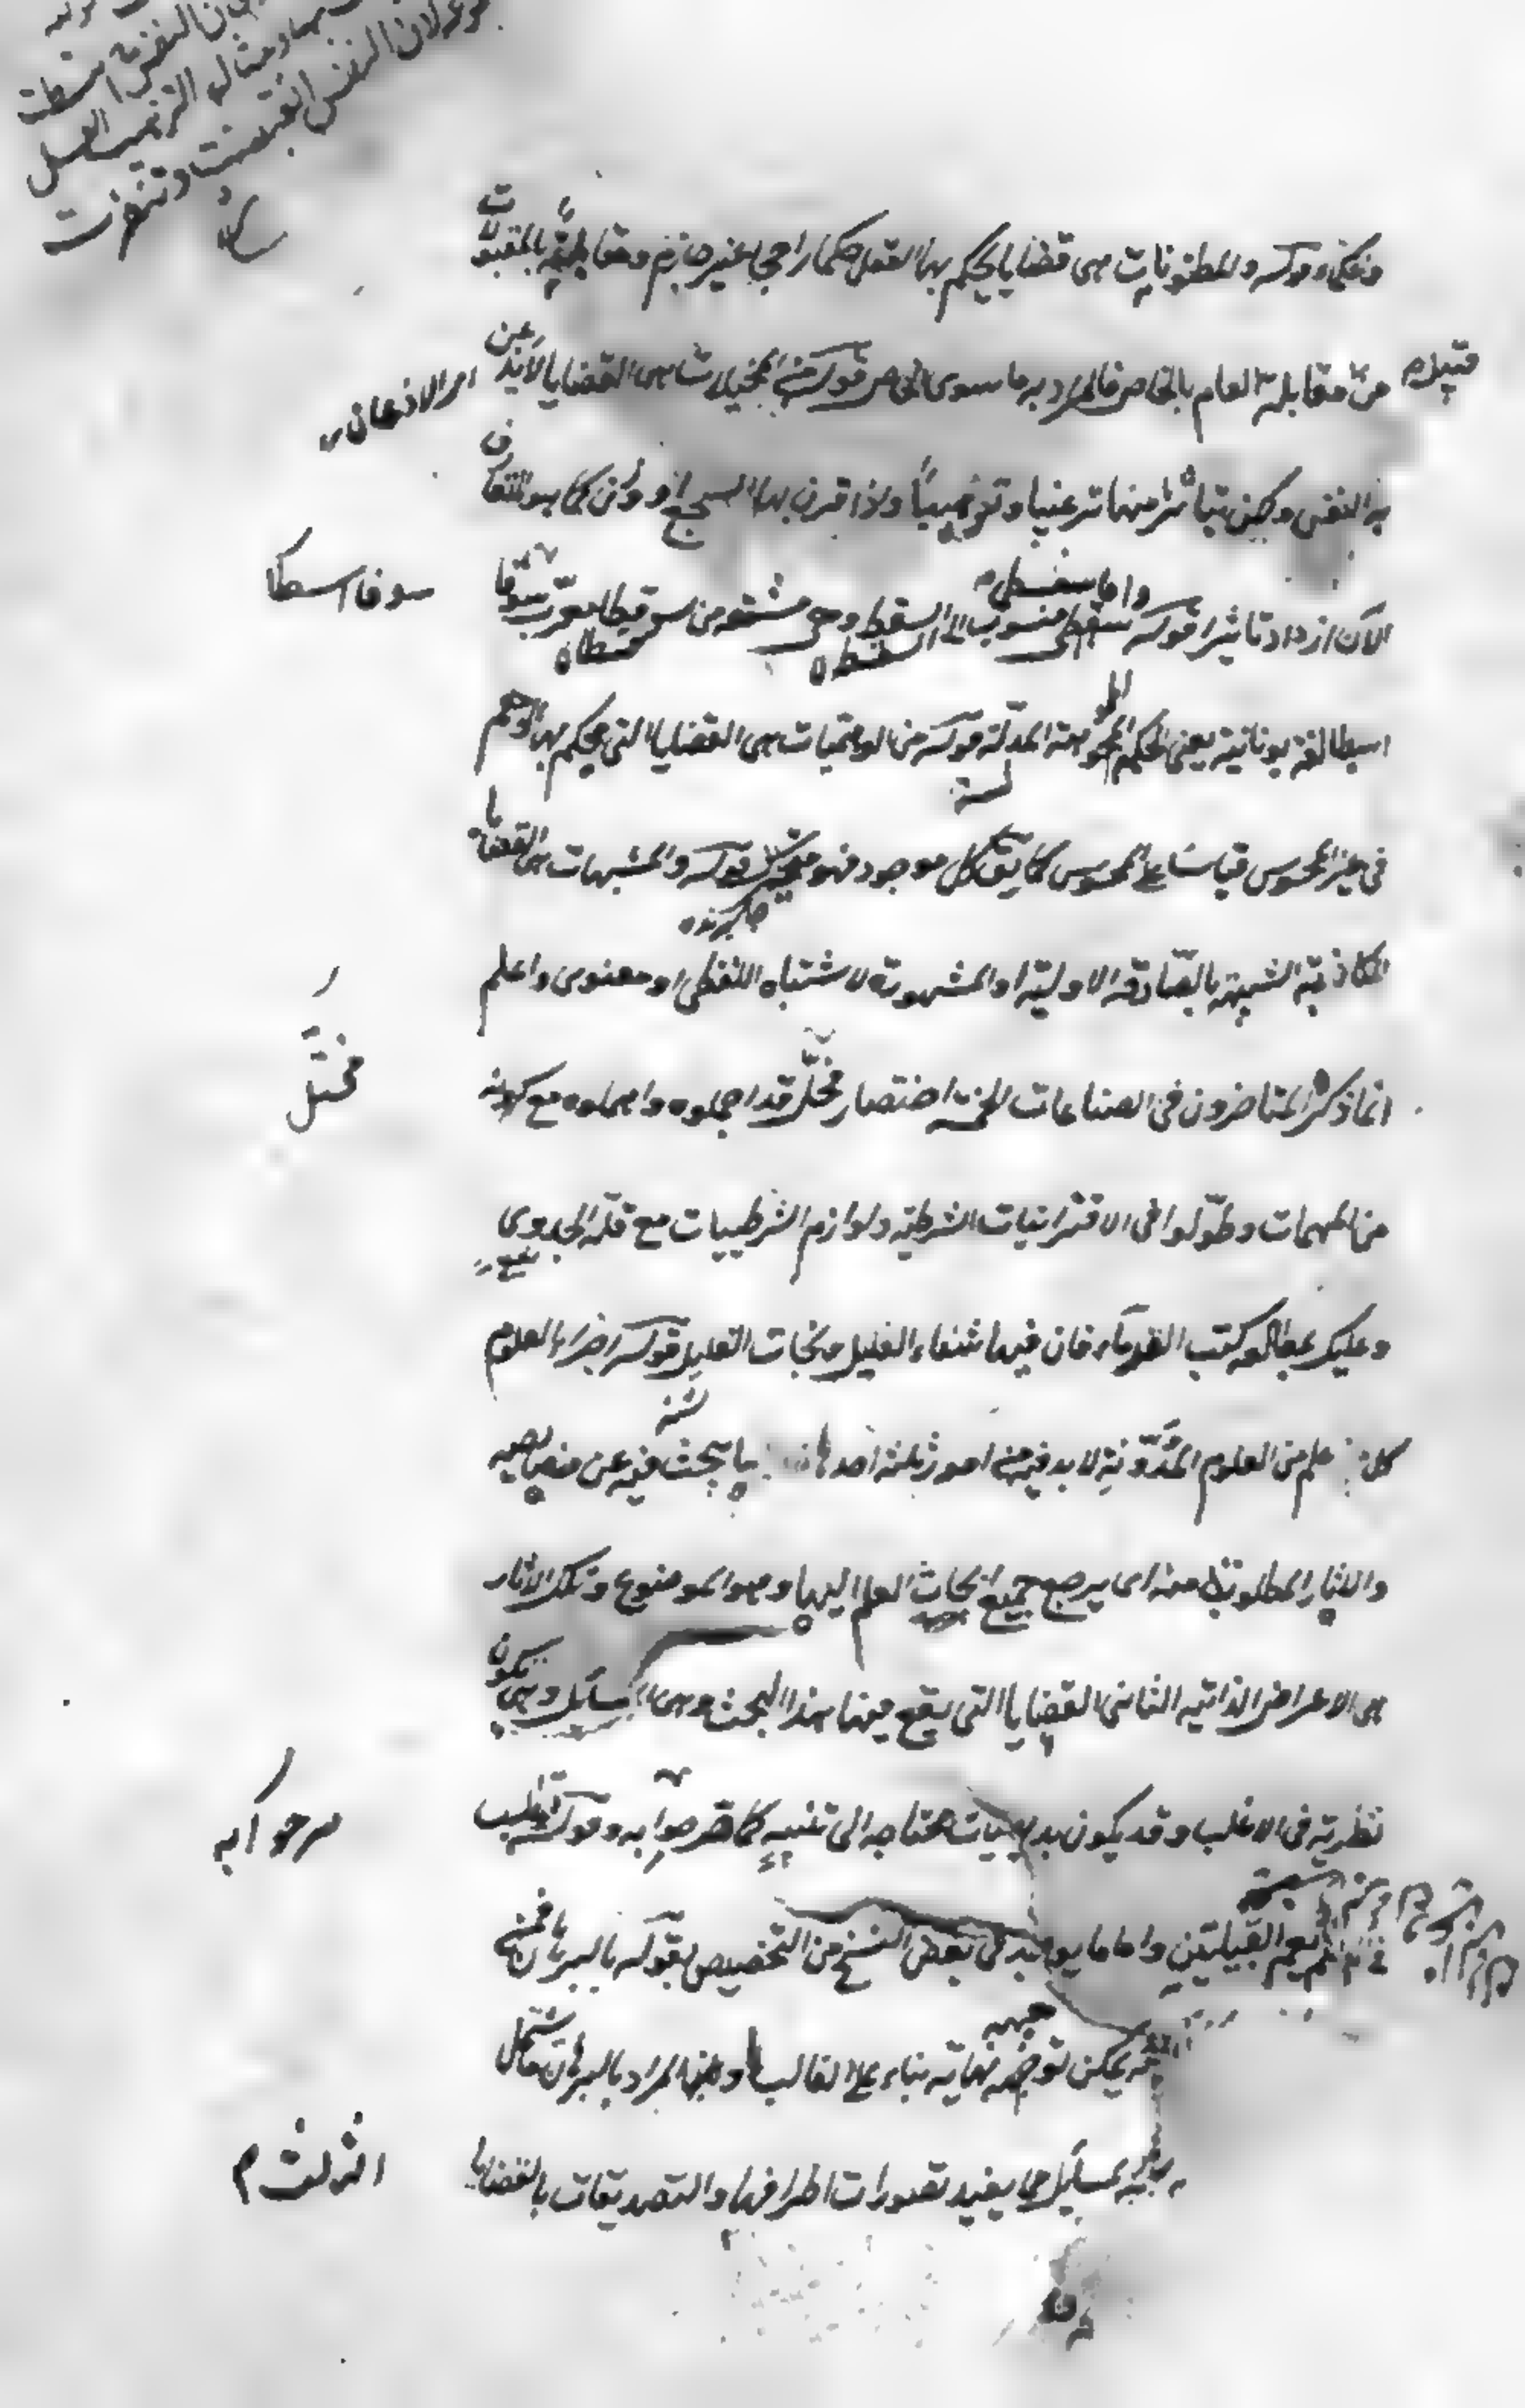 سوله
بان النفس انبسطت
بها ومثال الترهيب العسل
مرة لان النفس انقبضت وتنفرت
والحكماء قوله والمظنونات هى قضايا يحكم بها العقل حكما راجحا غير جازم ومقابلته بالمقبولات
قبيله
من مقابلة العام بالخاص فالمراد به ما سوى الخاص قوله من المخيلات هى القضايا لا يذعن
امر الاذعان
به النفس ولكن يتأثر منها ترغيبا وترهيبا واذا اقترن بها السجع او وزن كما هو المتعارف
الآن ازداد تاثيرا قوله واما سفسطى منسوب الى السفسطه وهى مشتقه من سوفسطا معرب سوفا
سوفا اسطا
اسطا لغة يونانية يعنى الحكم المموهة المدلسة قوله من الوهميات هى القضايا التى يحكم بها الوهم
فى غير المحسوس قياسا على المحسوس كما يق كل موجود فهو متحيز قوله والمشبهات هى القضايا
جاگيرنده
الكاذبة الشبيهة بالصادقة الاولية او المشهورة لاشتباه اللفظى او معنوى واعلم
انما ذكر المتاخرون فى الصناعات الخمس اختصار مخل قد اجملوه واهملوه مع كونه
مختل
من المهمات وطولوا فى الاقترانيات الشرطية ولوازم الشرطيات مع قلة الجدوى
نفع
وعليك بمطالعه كتب القدماء فان فيها شفاء العليل ونجات الغليل قوله اجزاء العلوم
كل علم من العلوم المدونة لا بد فيه من امور ثلثة احدها ما يبحث فيه عن خصايصه
والاثار المطلوبة منه اى يرجع جميع ابحاث العلم اليها وهو الموضوع وتلك الاثار
هى الاعراض الذاتيه الثانى القضايا التى يقع فيها هذا البحث وهى المسائل وهى تكون
نظرية فى الاغلب وقد يكون بديهيات محتاجه الى تنبيه كما صرحوا به وقوله تطلب
صرحوا به
فى العلم يعم القبيلتين واما ما يوجد فى بعض النسخ من التخصيص بقوله بالبرهان فمن
يمكن توجيهه نهايته بناء على الغالب او بان المراد بالبرهان ما يشمل
المسائل ما يفيد تصورات اطرافها والتصديقات بالقضايا
الثالث م